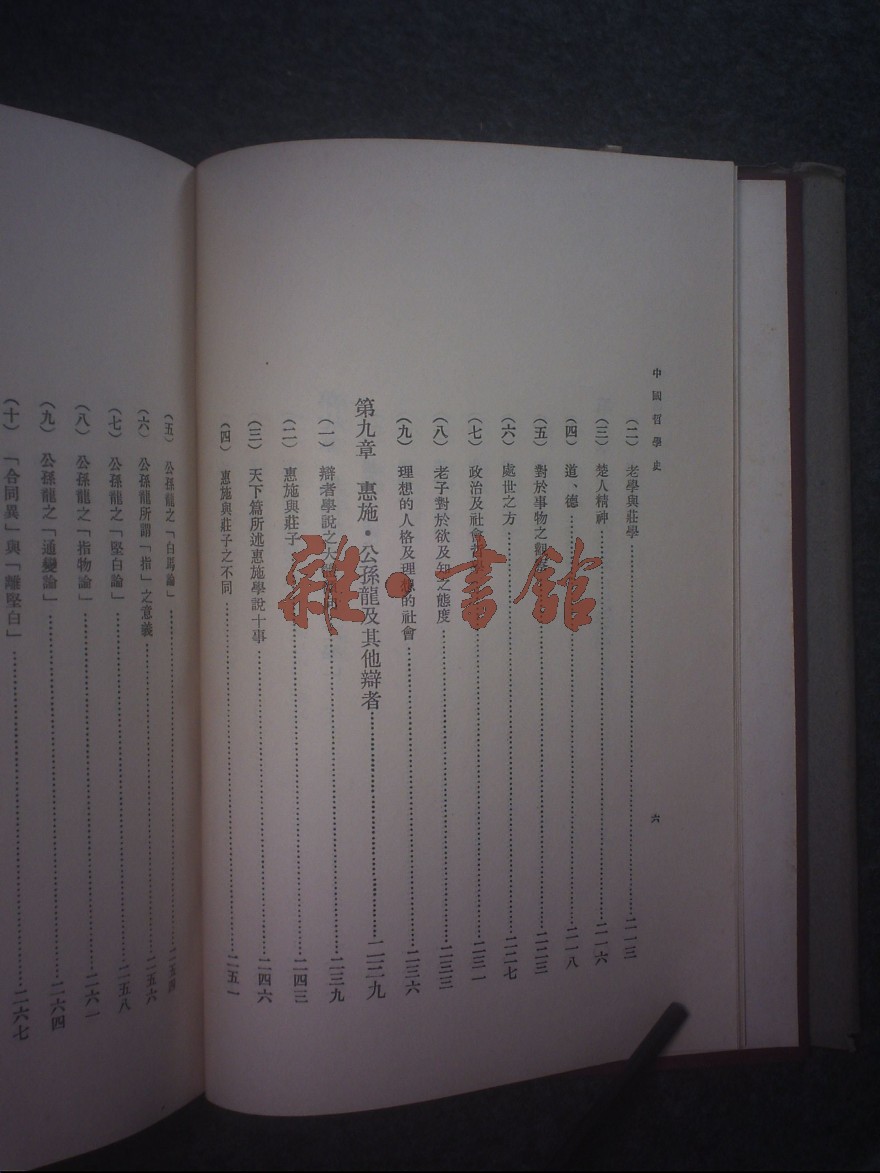 中國哲學史
六
（二） 老學與莊學……二一三
（三） 楚人精神……二一六
（四） 道、德……二一八
（五） 對於事物之觀……二二三
（六） 處世之方……二二七
（七） 政治及社會……二三一
（八） 老子對於欲及知之態度……二三三
（九） 理想的人格及理想的社會……二三六
第九章 惠施・公孫龍及其他辯者……二三九
（一） 辯者學說之大……二三九
（二） 惠施與莊子……二四三
（三） 天下篇所述惠施學說十事……二四六
（四） 惠施與莊子之不同……二五一
（五） 公孫龍之「白馬論」……二五四
（六） 公孫龍所謂「指」之意義……二五六
（七） 公孫龍之「堅白論」……二五八
（八） 公孫龍之「指物論」……二六一
（九） 公孫龍之「通變論」……二六四
（十） 「合同異」與「離堅白」……二六七
雜・書館